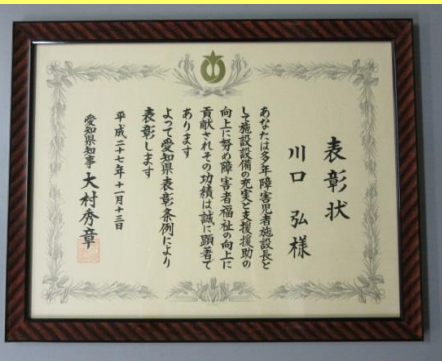 表彰状
川口 弘様
あなたは多年障害児者施設長と
して施設設備の充実と支援援助の
向上に努め障害者福祉の向上に
貢献されその功績は誠に顕著で
あります
よって愛知県表彰条例により
表彰します
平成二十七年十一月十三日
愛知県知事 大村秀章